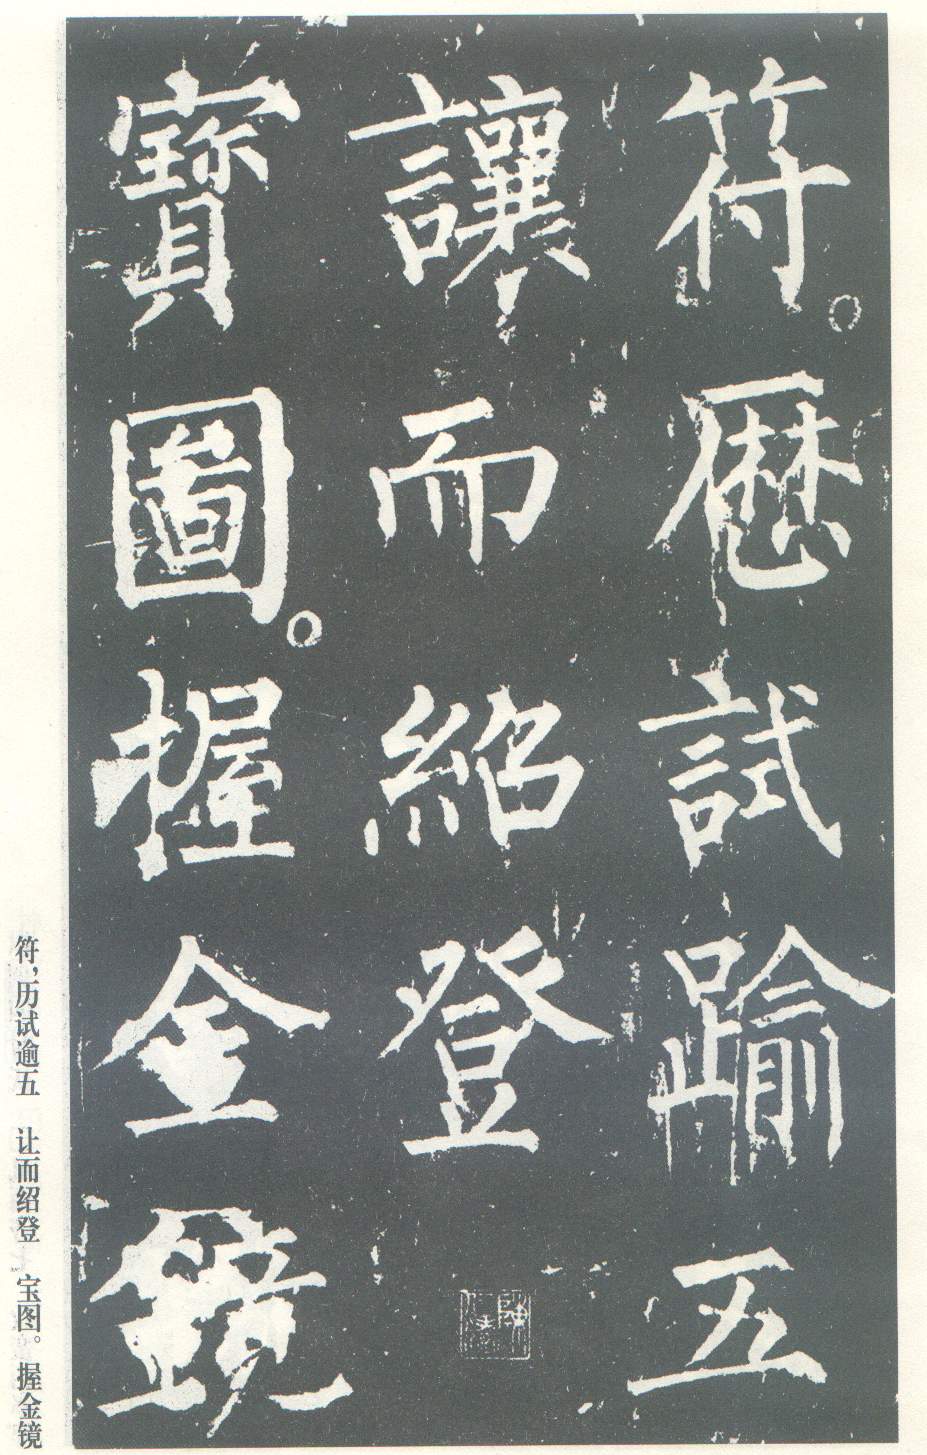 符。歷試踰五
讓而紹登
寶圖。握金鏡
符，历试逾五 让而绍登 宝图。握金镜